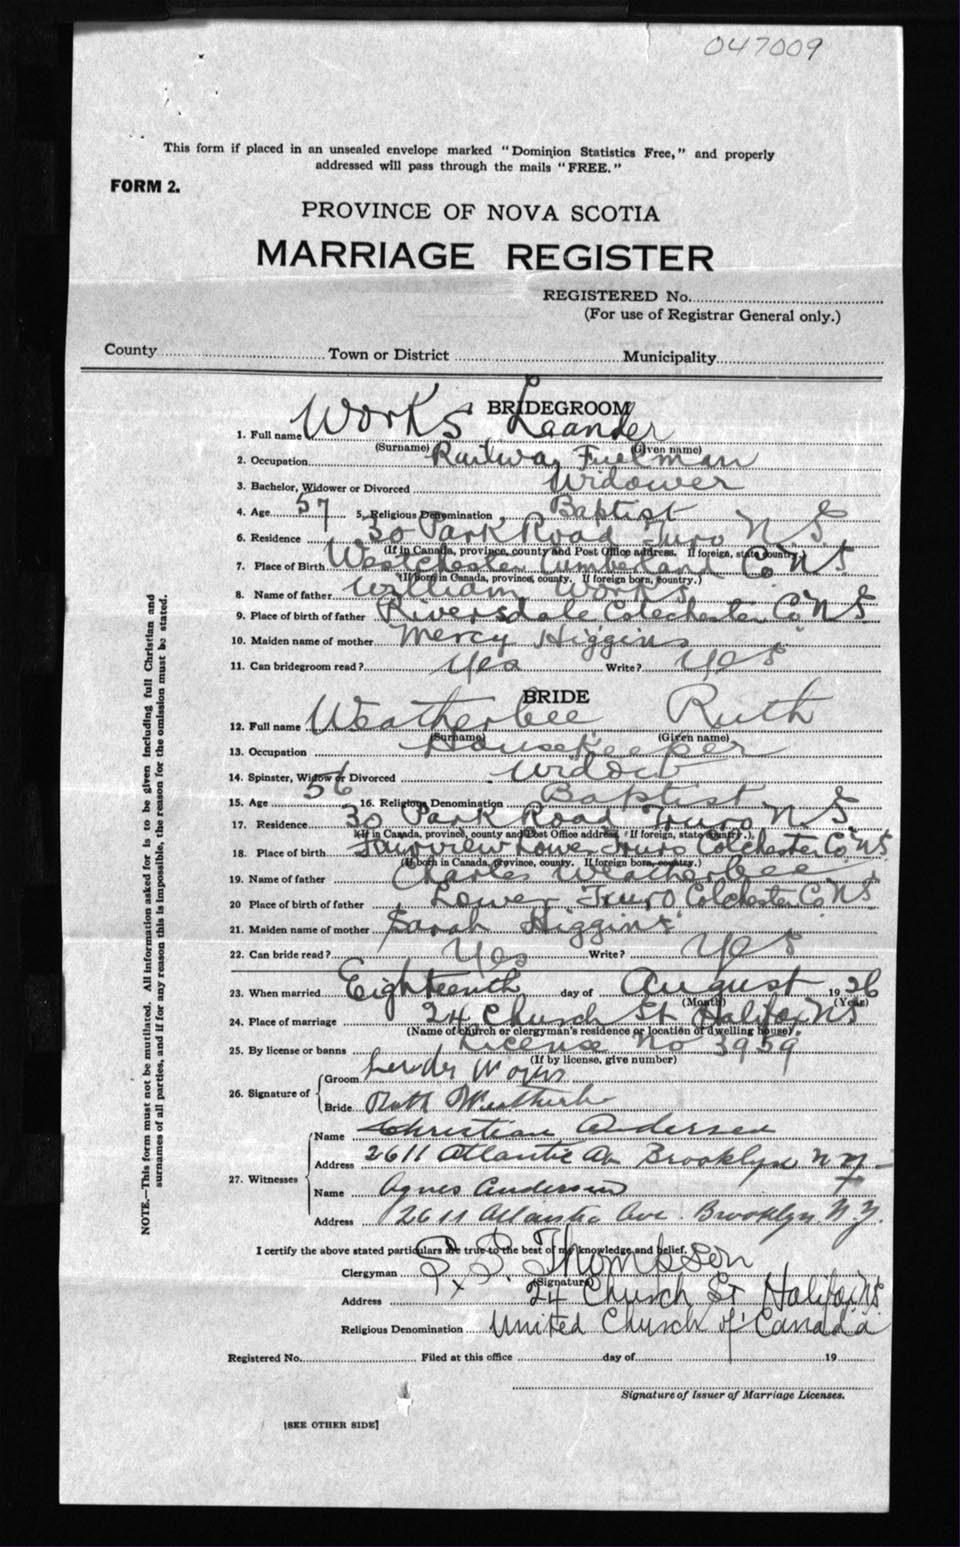 047009
This form if placed in an unsealed envelope marked "Dominion Statistics Free," and properly
addressed will pass through the mails "FREE."
FORM 2.
PROVINCE OF NOVA SCOTIA
MARRIAGE REGISTER
REGISTERED No.
(For use of Registrar General only.)
County Town or District Municipality
BRIDEGROOM
1. Full name Works Leander
(Surname) (Given name)
2. Occupation Railway Fuelman
3. Bachelor, Widower or Divorced Widower
4. Age 57 5. Religious Denomination Baptist
6. Residence 30 Park Road Truro N S
(If in Canada, province, county and Post Office address. If foreign, state country)
7. Place of Birth Westchester Cumberland Co N S
(If born in Canada, province, county. If foreign born, country.)
8. Name of father William Works
9. Place of birth of father Riversdale Colechester Co N S
10. Maiden name of mother Mercy Higgins
11. Can bridegroom read? Yes Write? Yes
BRIDE
12. Full name Weatherbee Ruth
(Surname) (Given name)
13. Occupation Housekeeper
14. Spinster, Widow or Divorced Widow
15. Age 56 16. Religious Denomination Baptist
17. Residence 30 Park Road Truro N S
(If in Canada, province, county and Post Office address, If foreign, state country.)
18. Place of birth Fairview Lower Truro Colchester Co NS
(If born in Canada, province, county. If foreign born, country.)
19. Name of father Charles Weatherbee
20 Place of birth of father Lower Truro Colchester Co NS
21. Maiden name of mother Sarah Higgins
22. Can bride read? Yes Write? Yes
23. When married Eighteenth day of August 1926
(Month) (Year)
24. Place of marriage 24 Church St Halifax NS
(Name of church or clergyman's residence or location of dwelling house)
25. By license or banns License No 3959
(If by license, give number)
26. Signature of Groom
Bride Ruth Weatherbe
27. Witnesses Name Christian Andersen
Address 2611 Atlantic Av Brooklyn N Y
Name Agnes Andersen
Address 2611 Atlantic Ave. Brooklyn N.Y.
I certify the above stated particulars are true to the best of my knowledge and belief.
Clergyman Thompson
(Signature)
Address 24 Church St Halifax NS
Religious Denomination United Church of Canada
Registered No. Filed at this office day of 19
Signature of Issuer of Marriage Licenses.
[SEE OTHER SIDE]
NOTE.—This form must not be mutilated. All information asked for is to be given including full Christian and
surnames of all parties, and if for any reason this is impossible, the reason for the omission must be stated.